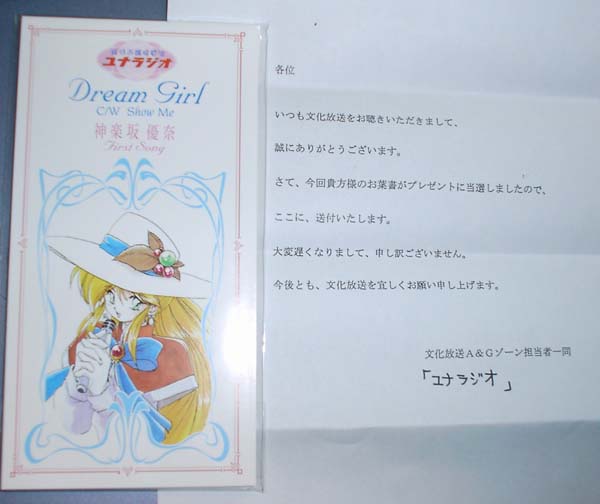 ユナラジオ
Dream Girl
C/W Show Me
神楽坂 優奈
First Song
各位
いつも文化放送をお聴きいただきまして、
誠にありがとうございます。
さて、今回貴方様のお葉書がプレゼントに当選しましたので、
ここに、送付いたします。
大変遅くなりまして、申し訳ございません。
今後とも、文化放送を宜しくお願い申し上げます。
文化放送A&Gゾーン担当者一同
「ユナラジオ」